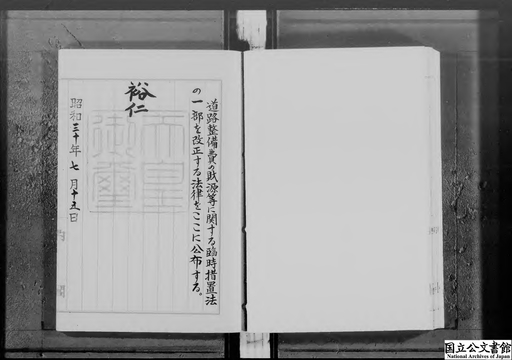 道路整備費の財源等に関する臨時措置法
の一部を改正する法律をここに公布する。
裕仁
天皇御璽
昭和三十年七月十五日
国立公文書館
National Archives of Japan